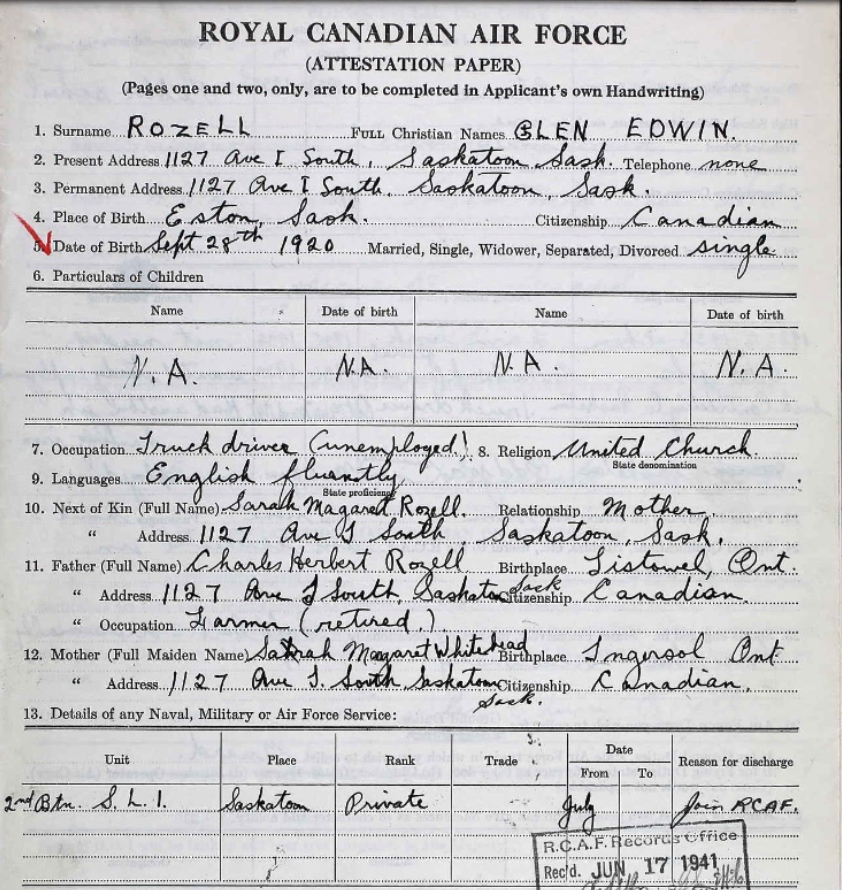 ROYAL CANADIAN AIR FORCE
(ATTESTATION PAPER)
(Pages one and two, only, are to be completed in Applicant's own Handwriting)
1. Surname ROZELL FULL Christian Names GLEN EDWIN.
2. Present Address 1127 Ave I South, Saskatoon Sask. Telephone none
3. Permanent Address 1127 Ave I South, Saskatoon, Sask.
4. Place of Birth Eston, Sask. Citizenship Canadian
5. Date of Birth Sept 28th 1920 Married, Single, Widower, Separated, Divorced single
6. Particulars of Children
Name Date of birth Name Date of birth
N.A. N.A. N.A. N.A.
7. Occupation Truck driver (unemployed). 8. Religion United Church.
State denomination
9. Languages English fluantly
State proficiency
10. Next of Kin (Full Name) Sarah Magaret Rozell. Relationship Mother.
" Address 1127 Ave I South Saskatoon, Sask.
11. Father (Full Name) Charles Herbert Rozell Birthplace Listowel, Ont.
" Address 1127 Ave I South, Saskatoon Sask Citizenship Canadian.
" Occupation Farmer (retired)
12. Mother (Full Maiden Name) Sarah Magaret Whitehead Birthplace Ingersol Ont
" Address 1127 Ave I. South, Saskatoon Sask. Citizenship Canadian.
13. Details of any Naval, Military or Air Force Service:
Unit Place Rank Trade Date Reason for discharge
From To
2nd Btn. S.L.I. Saskatoon Private July Join RCAF.
R.C.A.F. Records Office
Rec'd. JUN 17 1941